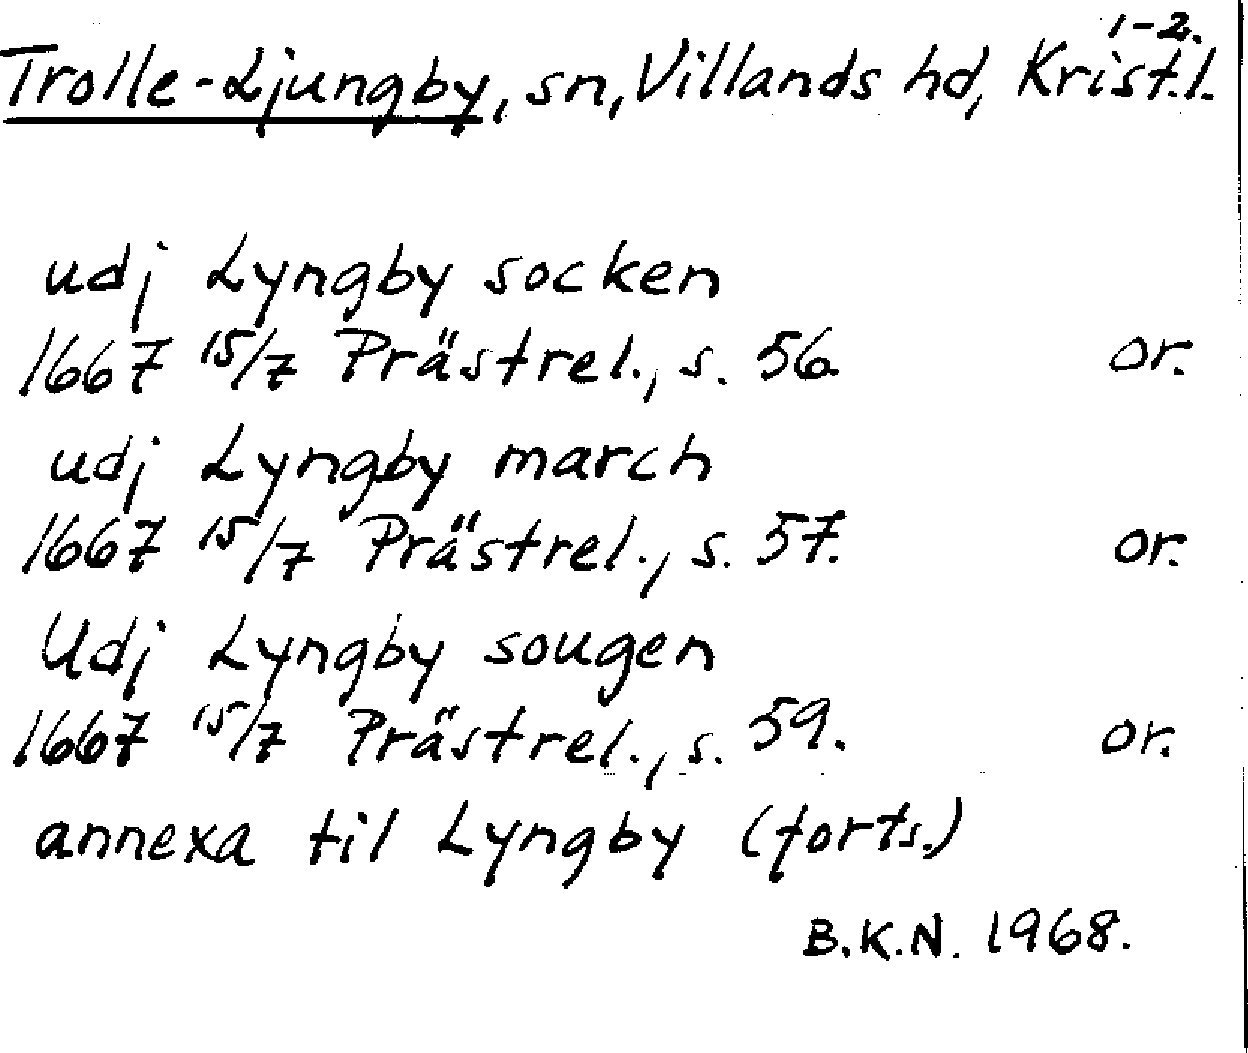 1-2.
Trolle-Ljungby, sn, Villands hd, Krist.l.
udj Lyngby socken
1667 15/7 Prästrel., s. 56. or.
udj Lyngby march
1667 15/7 Prästrel., s. 57. or.
Udj Lyngby sougen
1667 15/7 Prästrel., s. 59. or.
annexa til Lyngby (forts.)
B.K.N. 1968.